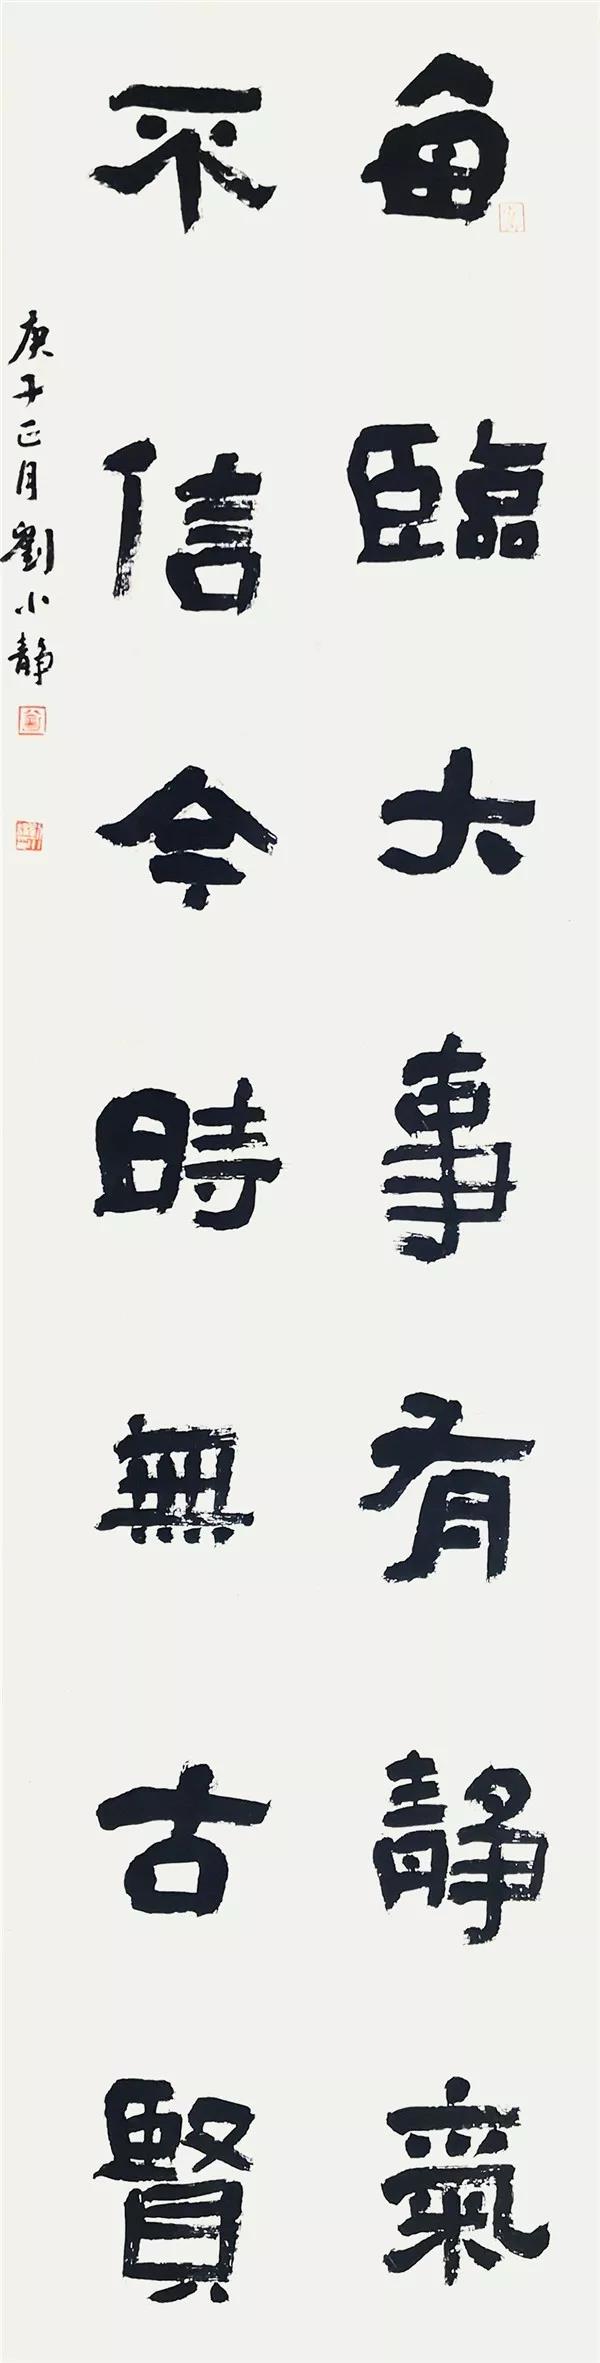 每臨大事有靜氣
不信今時無古賢
庚子正月劉小靜